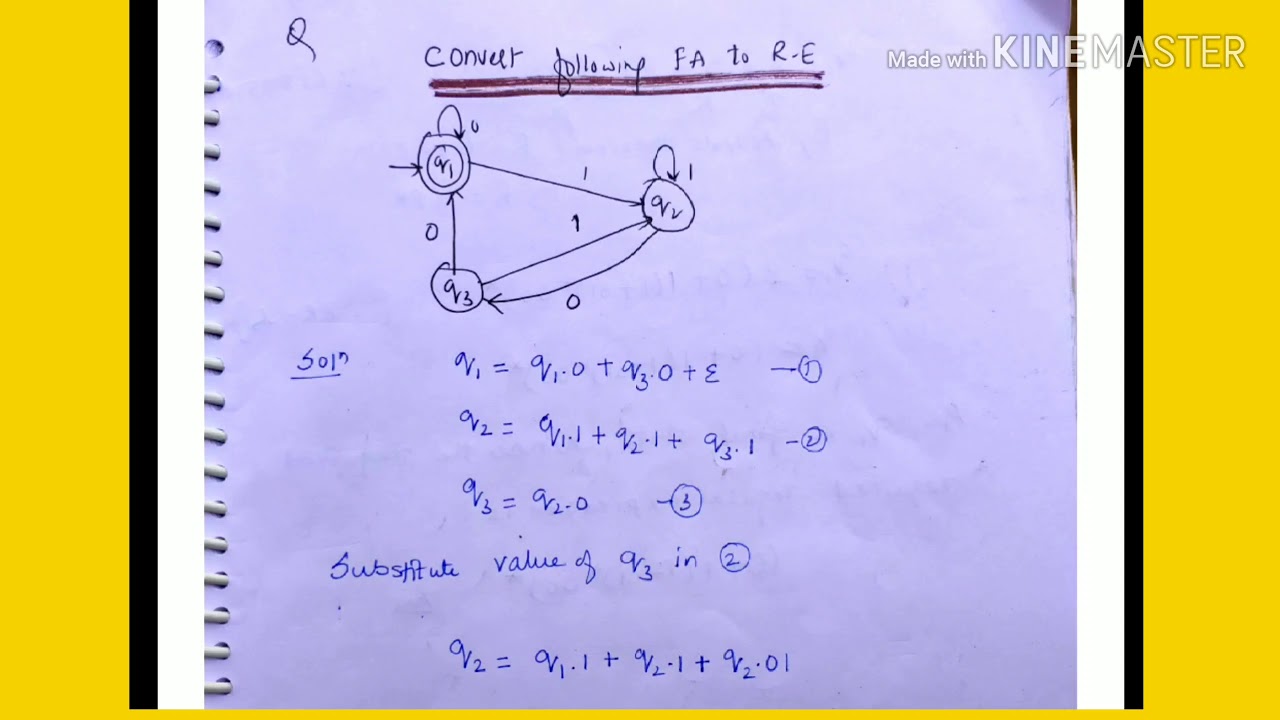 Q
Convert following FA to R-E
Made with KINEMASTER
0
q1
1
1
q2
0
1
q3
0
Soln
q1 = q1.0 + q3.0 + ε —①
q2 = q1.1 + q2.1 + q3.1 -②
q3 = q2.0 -③
Substitute value of q3 in ②
q2 = q1.1 + q2.1 + q2.01